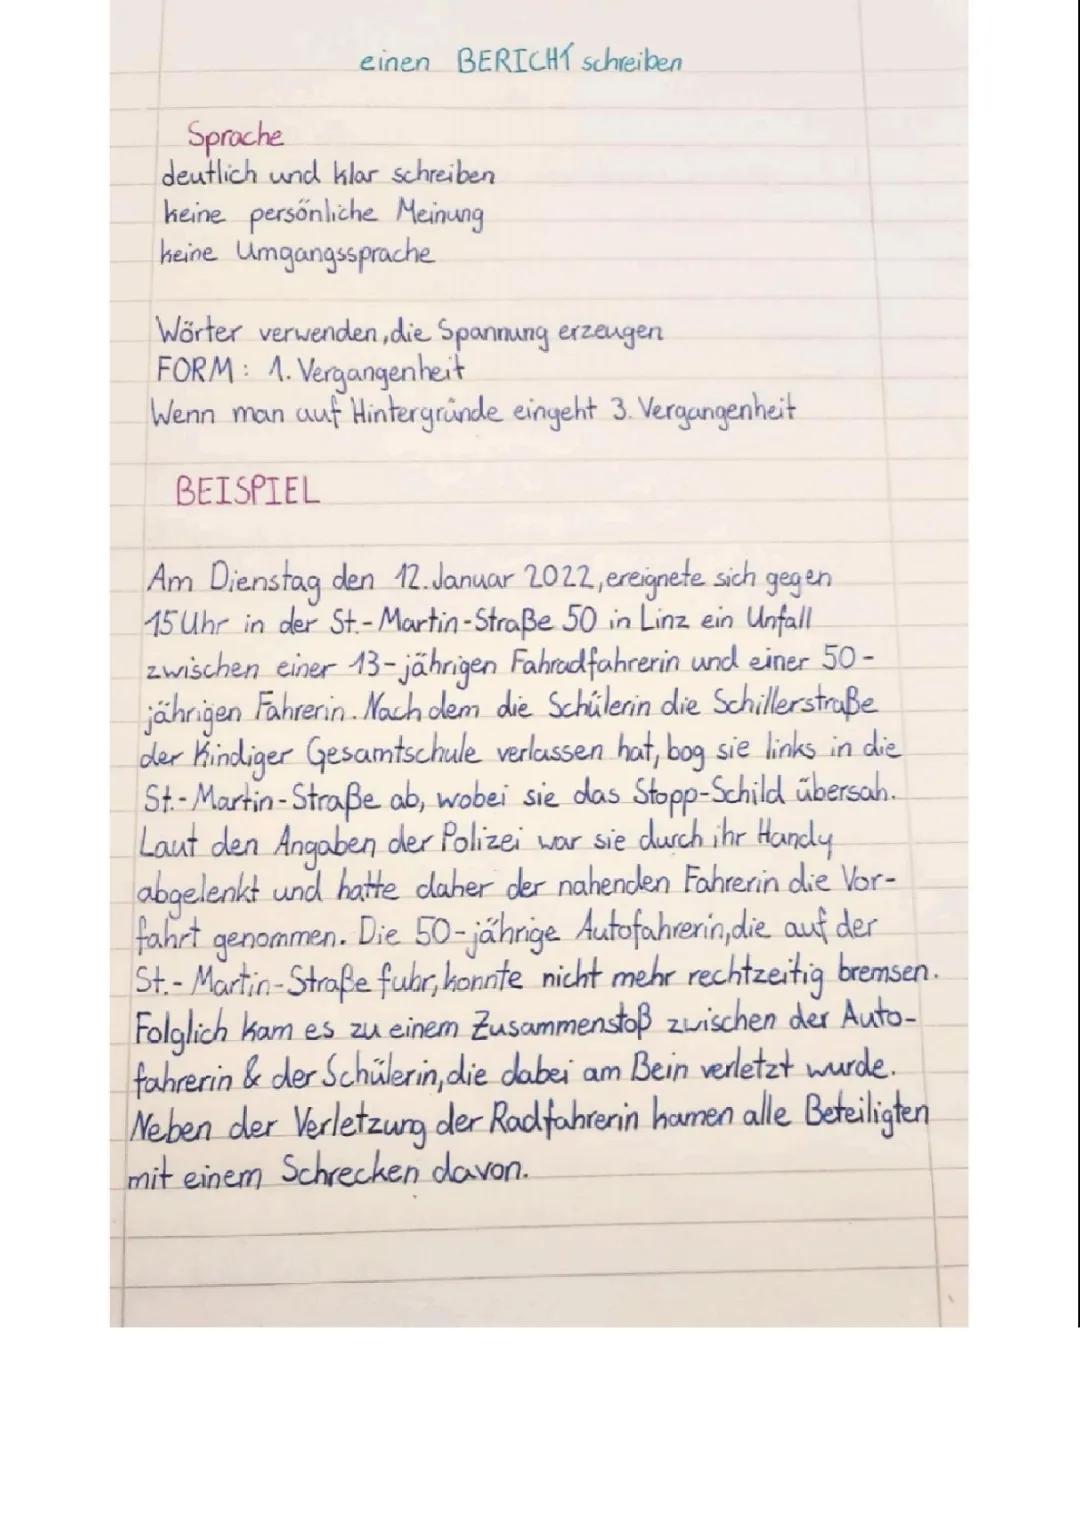 einen BERICHT schreiben
Sprache
deutlich und klar schreiben
keine persönliche Meinung
keine Umgangssprache
Wörter verwenden, die Spannung erzeugen
FORM: 1. Vergangenheit
Wenn man auf Hintergründe eingeht 3. Vergangenheit
BEISPIEL
Am Dienstag den 12. Januar 2022, ereignete sich gegen
15 Uhr in der St.-Martin-Straße 50 in Linz ein Unfall
zwischen einer 13-jährigen Fahradfahrerin und einer 50-
jährigen Fahrerin. Nachdem die Schülerin die Schillerstraße
der Kindiger Gesamtschule verlassen hat, bog sie links in die
St.-Martin-Straße ab, wobei sie das Stopp-Schild übersah.
Laut den Angaben der Polizei war sie durch ihr Handy
abgelenkt und hatte daher der nahenden Fahrerin die Vor-
fahrt genommen. Die 50-jährige Autofahrerin, die auf der
St.-Martin-Straße fuhr, konnte nicht mehr rechtzeitig bremsen.
Folglich kam es zu einem Zusammenstoß zwischen der Auto-
fahrerin & der Schülerin, die dabei am Bein verletzt wurde.
Neben der Verletzung der Radfahrerin kamen alle Beteiligten
mit einem Schrecken davon.